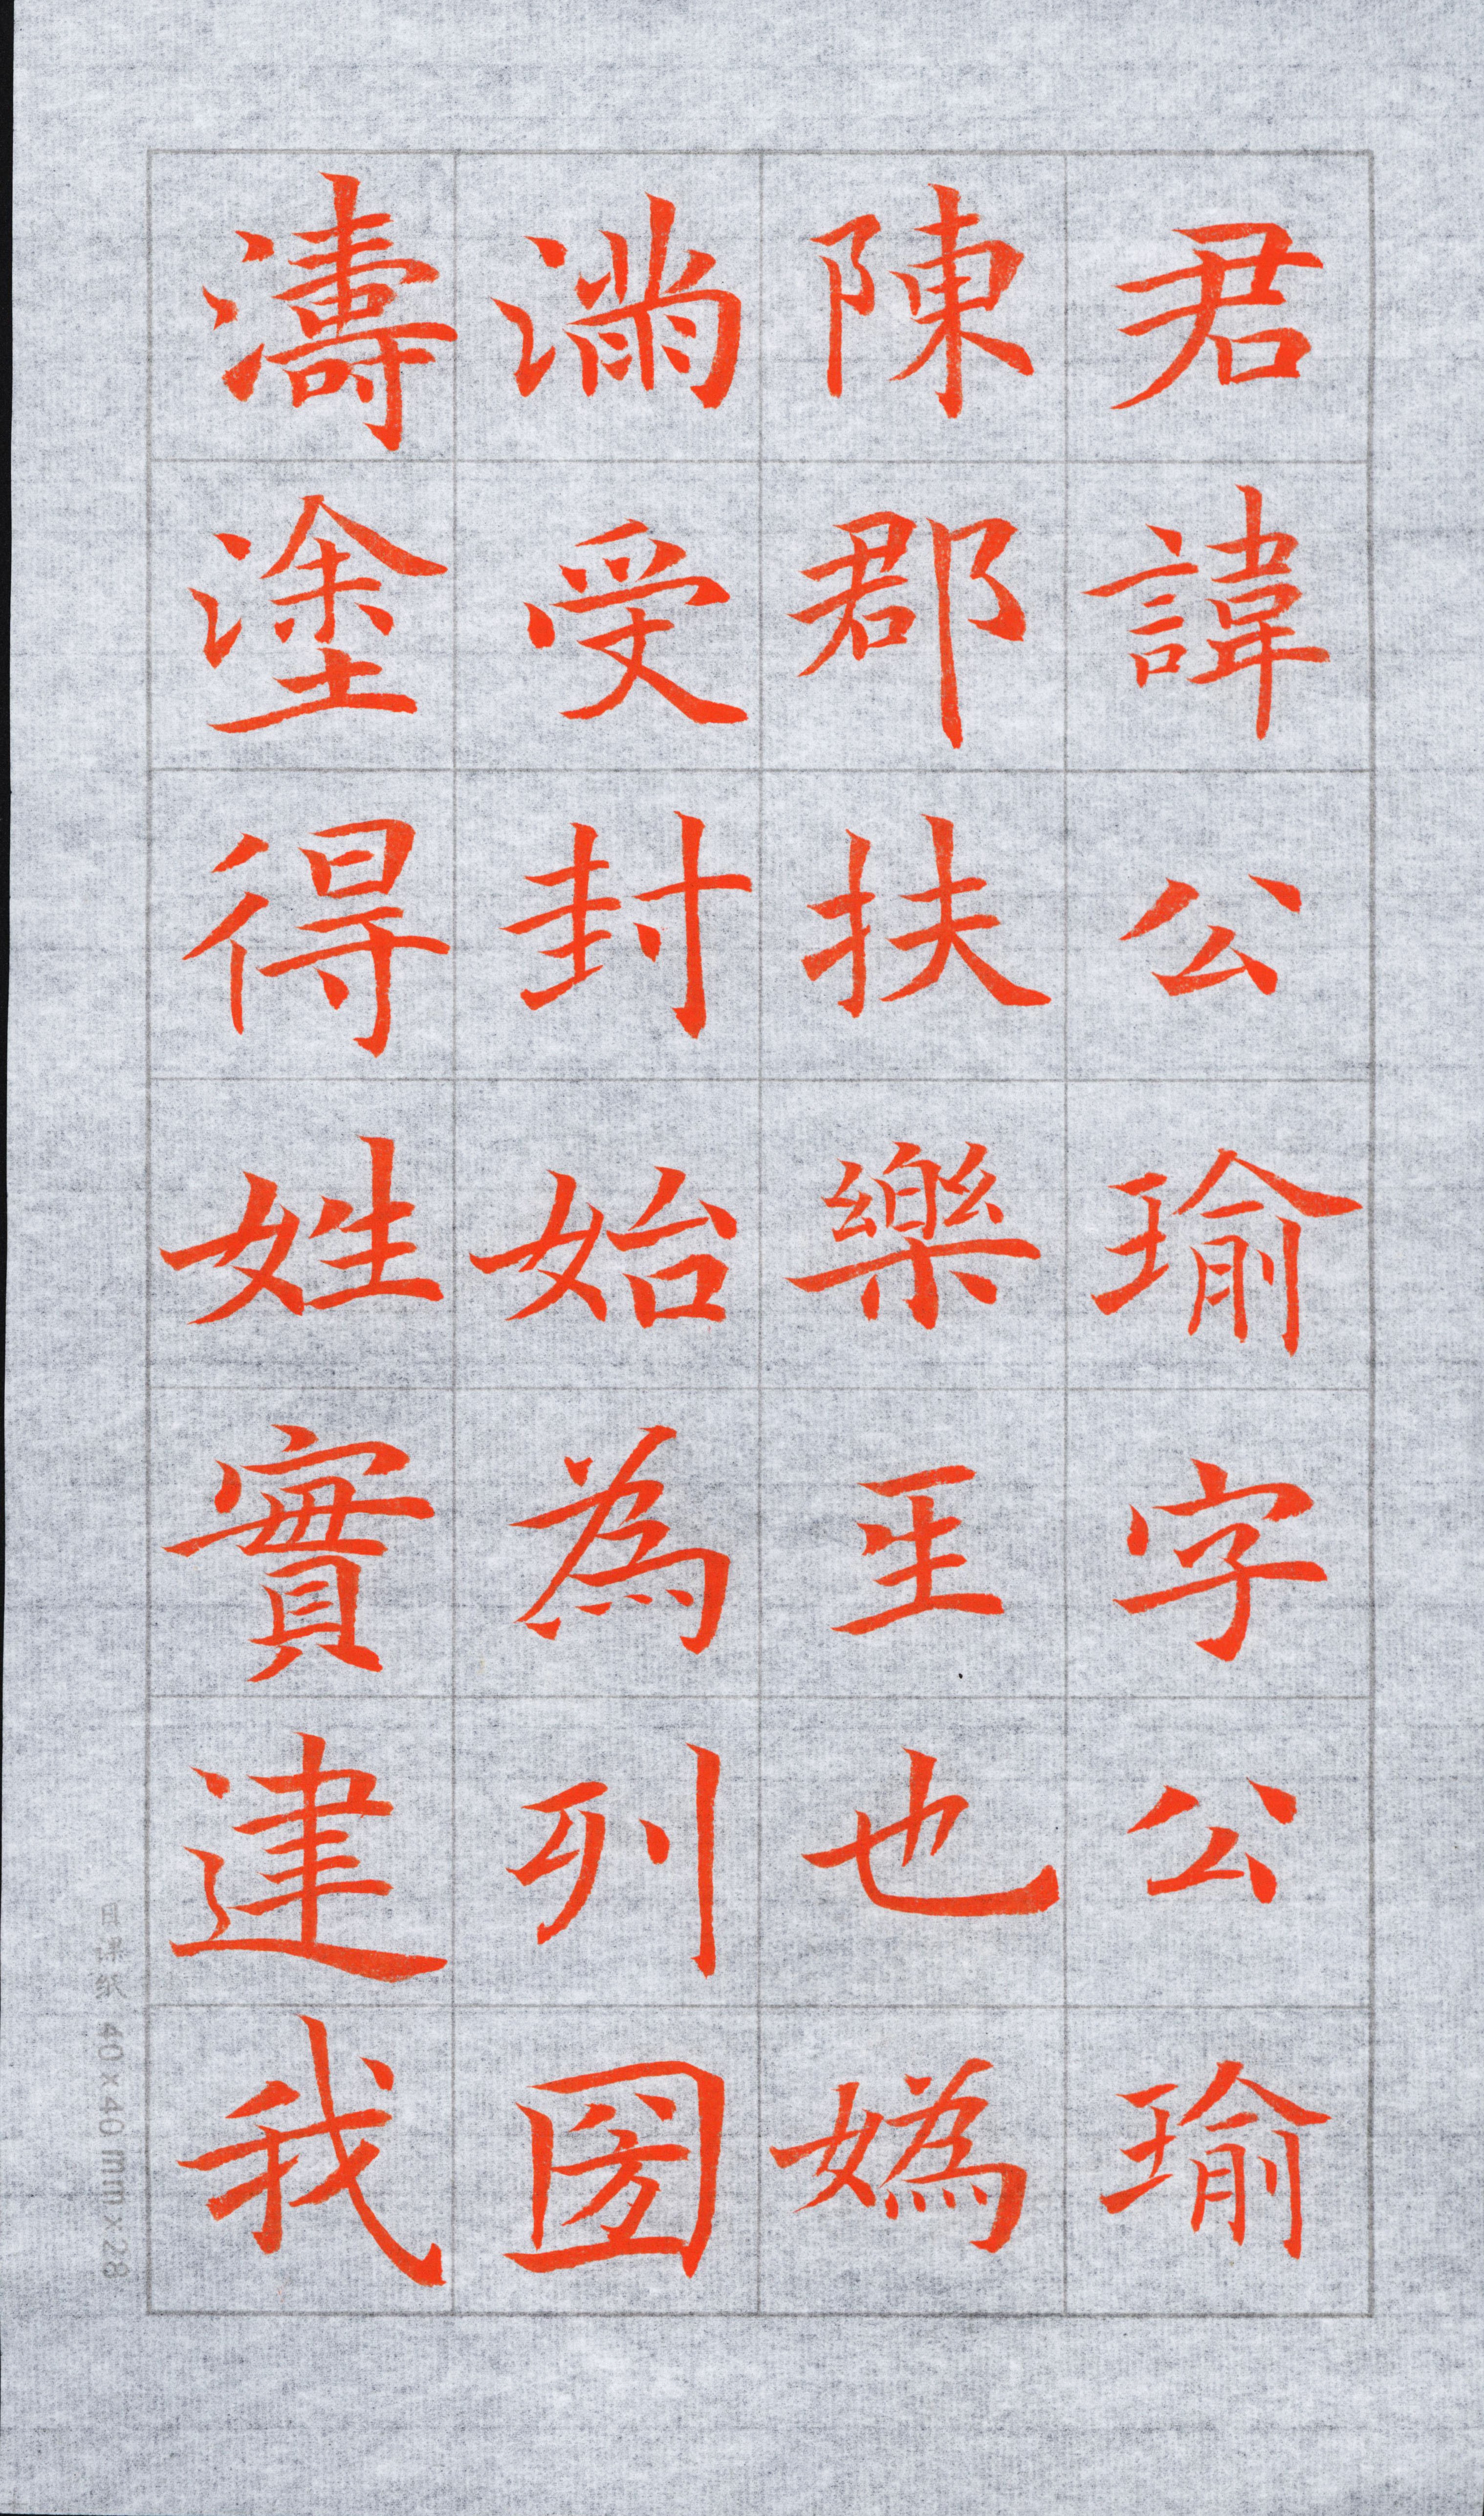 君諱公瑜字公瑜
陳郡扶樂𤯔也媯
滿受封始為列圀
濤塗得姓實建我
日课纸 40×40mm×28